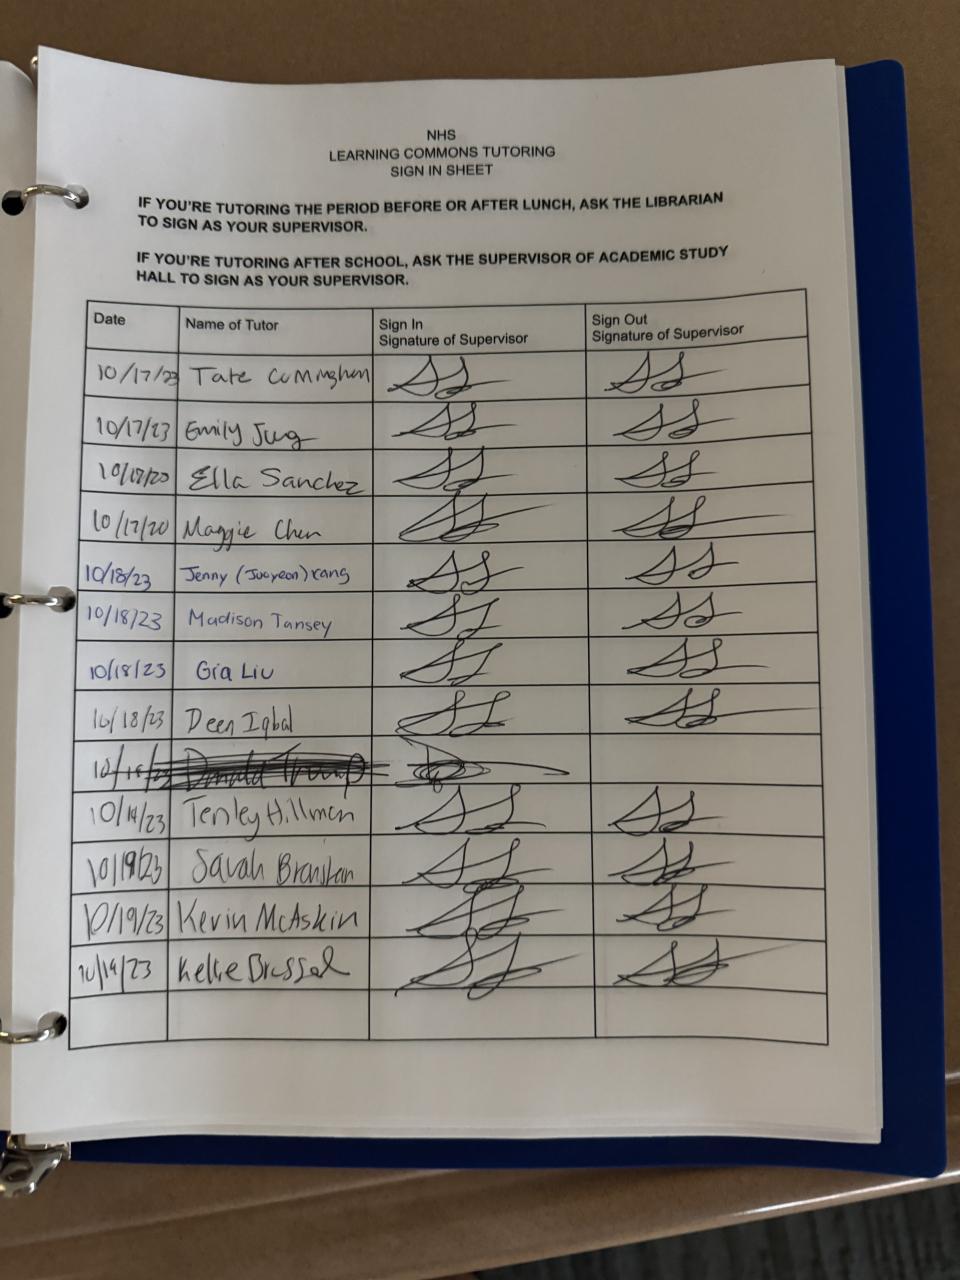 NHS
LEARNING COMMONS TUTORING
SIGN IN SHEET
IF YOU'RE TUTORING THE PERIOD BEFORE OR AFTER LUNCH, ASK THE LIBRARIAN
TO SIGN AS YOUR SUPERVISOR.
IF YOU'RE TUTORING AFTER SCHOOL, ASK THE SUPERVISOR OF ACADEMIC STUDY
HALL TO SIGN AS YOUR SUPERVISOR.
Date Name of Tutor Sign In Sign Out
Signature of Supervisor Signature of Supervisor
10/17/23 Tate
10/17/23 Emily Jung
Ella Sanchez
10/17/20 Maggie Chen
10/18/23 Jenny (Jooyeon) Kang
10/18/23 Madison Tansey
10/18/23 Gia Liu
10/18/23 Deen Iqbal
Donald Trump
Tenley Hillman
10/19/23 Sarah
10/19/23 Kevin McAskin
10/19/23